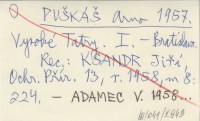 PUŠKÁŠ Arno 1957.
Vysoké Tatry. I. - Bratislava.
Rec.: KSANDR Jiří
Ochr. Přír. 13, r. 1958, n: 8:
224. - ADAMEC V. 1958...